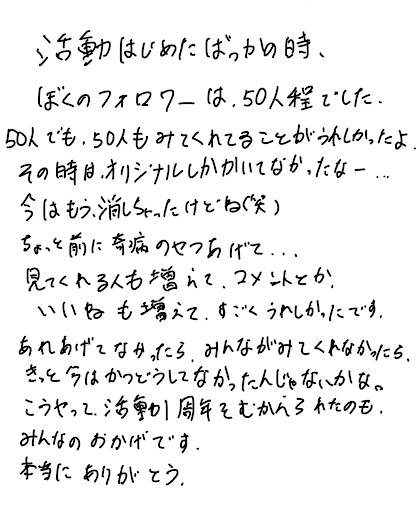 活動はじめたばっかの時、
ぼくのフォロワーは、50人程でした、
50人でも、50人もみてくれてることがうれしかったよ、
その時は、オリジナルしかかいてなかったなー...
今はもう、消しちゃったけどね(笑)
ちょっと前に奇病のやつあげて...
見てくれる人も増えて、コメントとか、
いいねも増えて、すごくうれしかったです、
あれあげてなかったら、みんながみてくれなかったら、
きっと今はかつどうしてなかったんじゃないかな。
こうやって、活動1周年をむかえられたのも、
みんなのおかげです、
本当にありがとう、